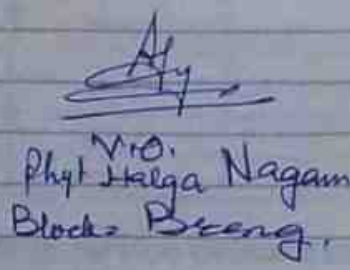 V.O.
Phyt Halqa Nagam
Block: Breng.